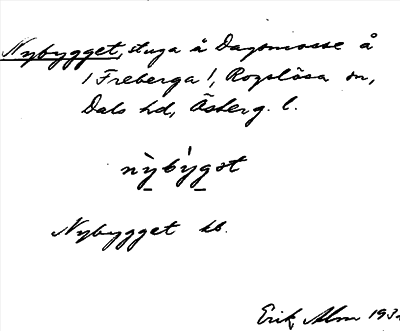 Nybygget, stuga å Dagsmosse å
/Freberga/, Rogslösa sn,
Dals hd, Österg. l.
nỳbýgət
Nybygget hb.
Erik Alm 193